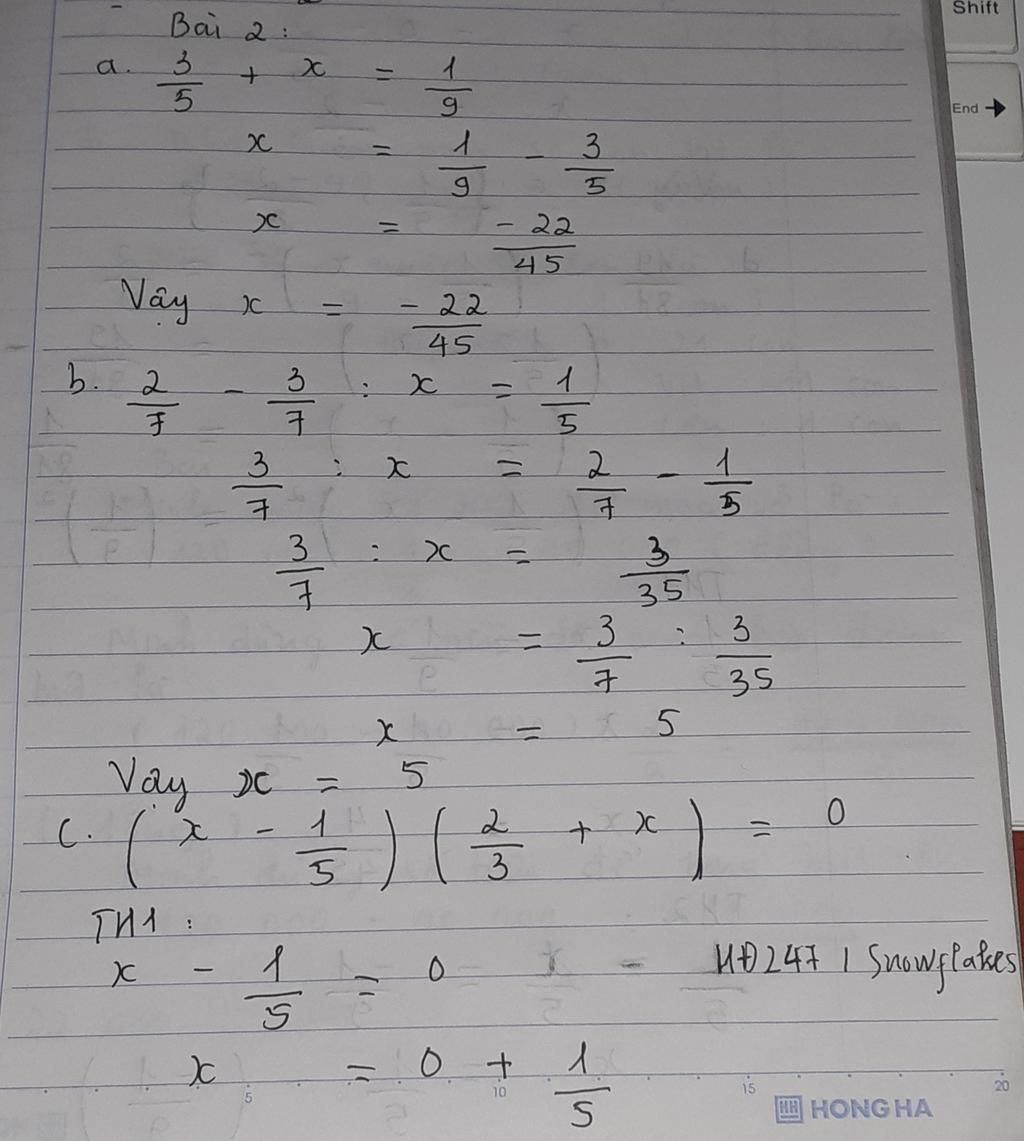 Bài 2 :
a. 3/5 + x = 1/9
x = 1/9 - 3/5
x = -22/45
Vậy x = -22/45
b. 2/7 - 3/7 : x = 1/5
3/7 : x = 2/7 - 1/5
3/7 : x = 3/35
x = 3/7 : 3/35
x = 5
Vậy x = 5
c. (x - 1/5) (2/3 + x) = 0
TH1 :
x - 1/5 = 0
HĐ247 | Snowflakes
x = 0 + 1/5
5 10 15 20
HH HONG HA
Shift
End →